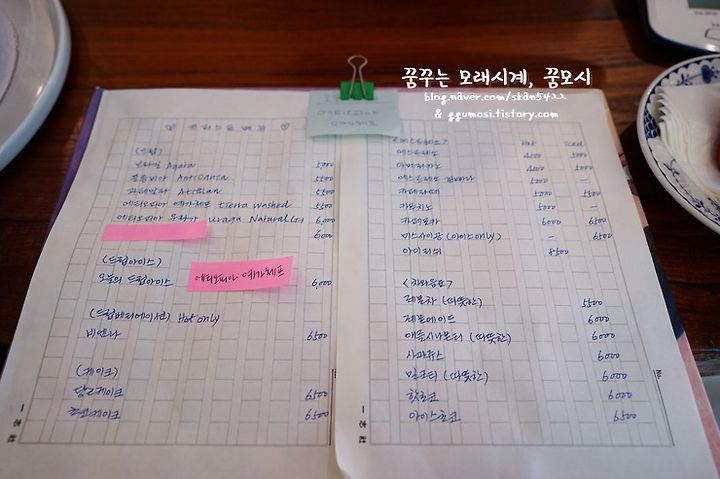 꿈꾸는 모래시계, 꿈모시
blog.naver.com/skan5422
& ggumosi.tistory.com
(드립)
브라질 Agata 5500
콜롬비아 5500
과테말라 5500
에티오피아 예가체프 tierra washed 5500
에티오피아 우라가 uraga Natural 6,000
6000
(드립아이스)
오늘의 드립아이스 6,000
에티오피아 예가체프
(드립베리에이션) Hot only
비엔나 6500
(케이크)
당근케이크 6500
초코케이크 6500
一志社
<에스프레소> Hot Iced
에스프레소 4500 5000
아메리카노 4500 5000
에스프레소 콘파나 5000 -
카페라떼 5000 5500
카푸치노 5000 -
카페모카 6000 6500
미스사이공 (아이스only) - 6500
아이리쉬 8500
<차와음료>
레몬차 (따뜻한) 5500
레몬에이드 6000
애플시나몬티 (따뜻한) 6000
사과쥬스 6000
밀크티 (따뜻한) 6000
핫초코 6000
아이스초코 6500
No.
一志社